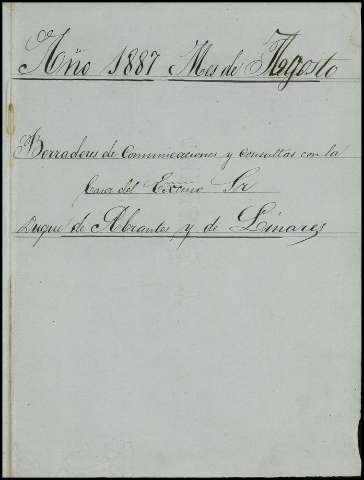 Año 1887 Mes de Agosto
Borradores de Comunicaciones y Consultas con la
Casa del Excmo Sr
Duque de Abrantes y de Linares